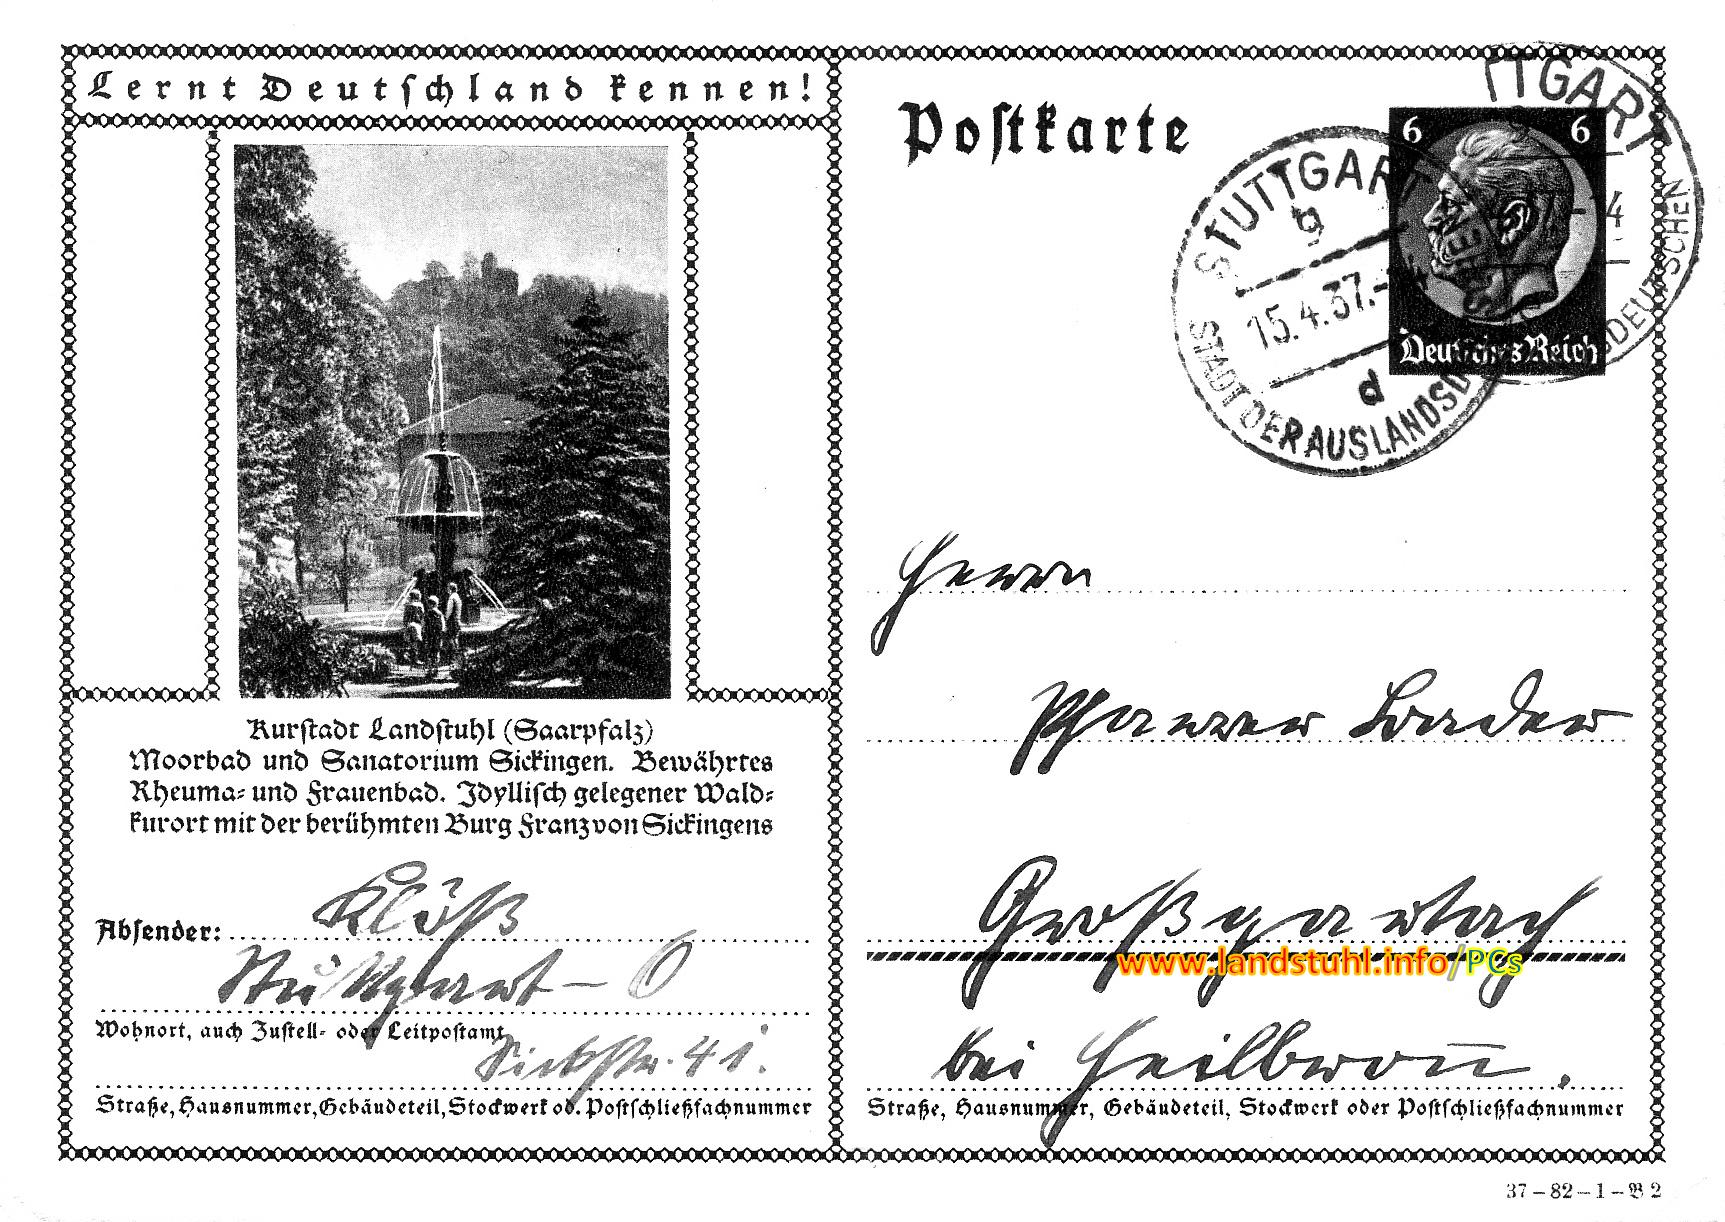 Lernt Deutschland kennen!
Kurstadt Landstuhl (Saarpfalz)
Moorbad und Sanatorium Sickingen. Bewährtes
Rheuma- und Frauenbad. Idyllisch gelegener Wald-
kurort mit der berühmten Burg Franz von Sickingens
Absender: Klöß
Stuttgart - O
Wohnort, auch Zustell- oder Leitpostamt
Sickstr. 41.
Straße, Hausnummer, Gebäudeteil, Stockwerk od. Postschließfachnummer
Postkarte
6 6
Deutsches Reich
STUTTGART
9
15.4.37.-
d
STADT DER AUSLANDSD
TTGART
SDEUTSCHEN
Herrn
Pfarrer Bader
Großgartach
www.landstuhl.info/PCs
bei Heilbronn.
Straße, Hausnummer, Gebäudeteil, Stockwerk oder Postschließfachnummer
37-82-1-B 2